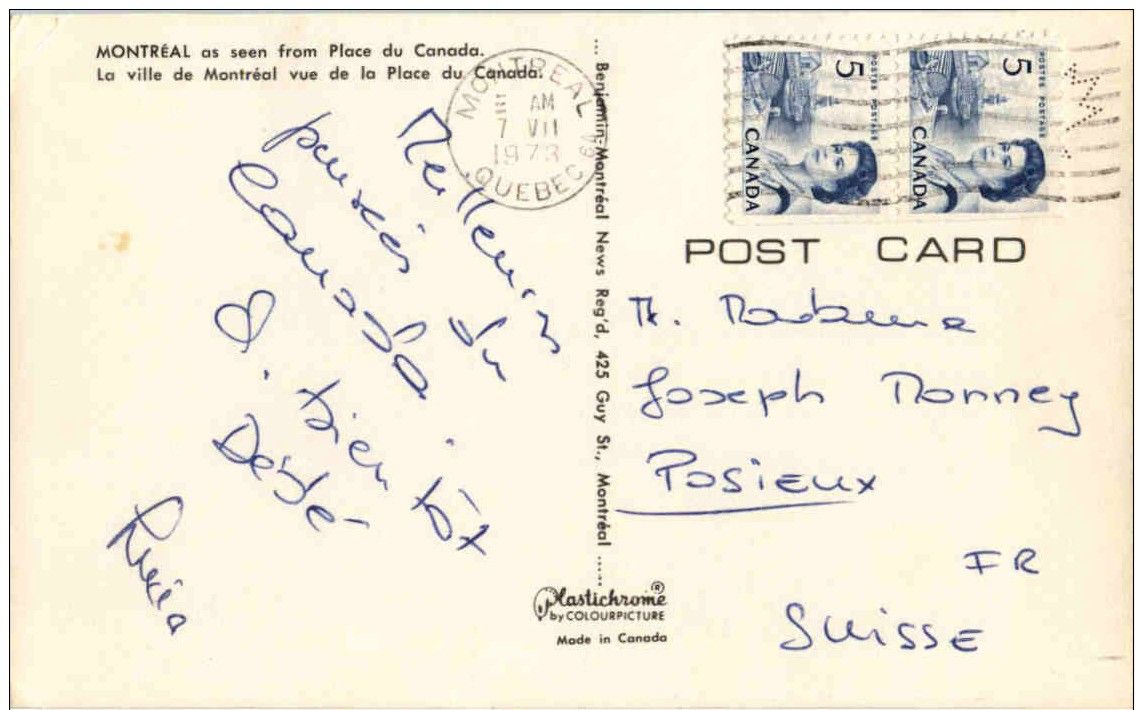 MONTRÉAL as seen from Place du Canada.
La ville de Montréal vue de la Place du Canada.
MONTREAL
AM
7 VII
1973
QUEBEC
5
POSTES POSTAGE
CANADA
5
POSTES POSTAGE
CANADA
Meilleures
pensées du
Canada
. bien tôt
Désiré
... Benjamin-Montréal News Reg'd, 425 Guy St., Montréal .....
POST CARD
M. Madame
Joseph Monney
Posieux
FR
SUISSE
Plastichrome®
by COLOURPICTURE
Made in Canada